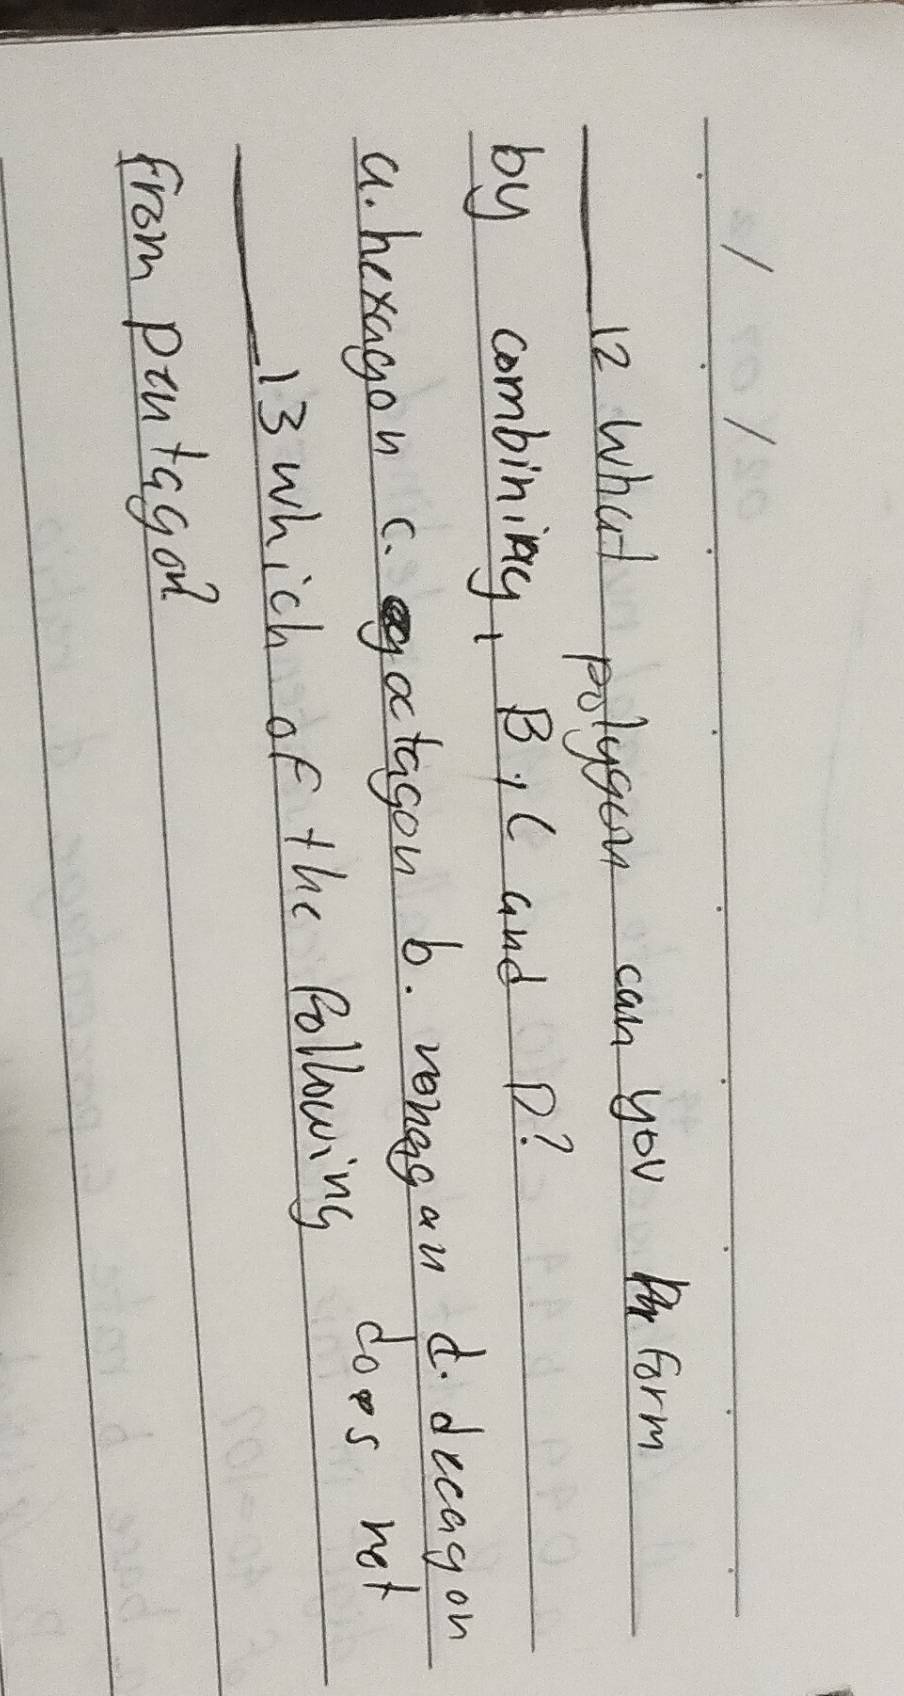 12 what polygon can you form
by combining, B, C and D?
a. hexagon c. octagon b. nonagan d. decagon
13 which of the following does not
from pentagon?